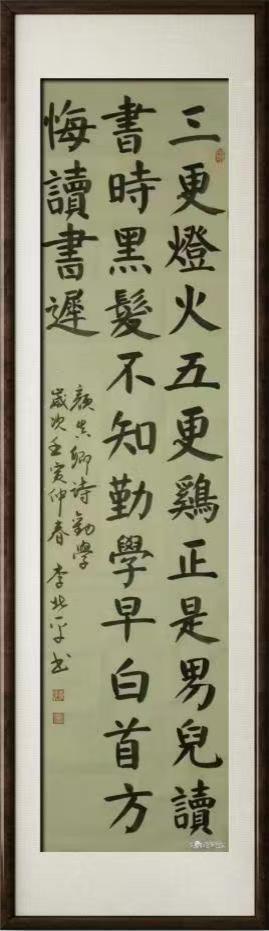 三更燈火五更鷄正是男兒讀
書時黑髮不知勤學早白首方
悔讀書遲
顏真卿詩勸學
歲次壬寅仲春 李北平书